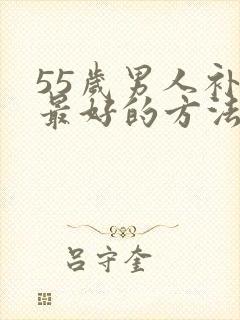 55歲男人补
最好的方法
吕守奎